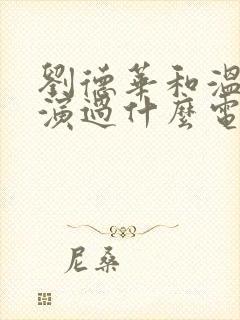 劉德華和溫
演過什麼電
尼桑